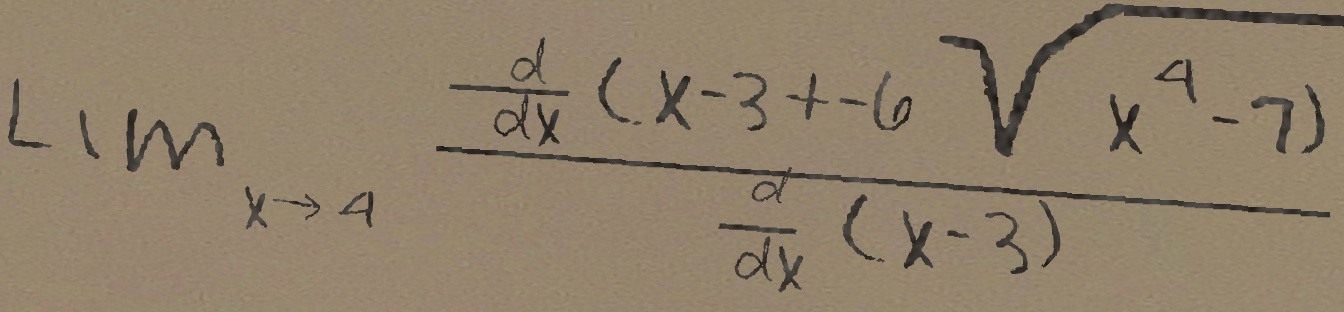 \lim_{x \to 4} \frac{\frac{d}{dx}(x-3+-6\sqrt{x^4-7})}{\frac{d}{dx}(x-3)}